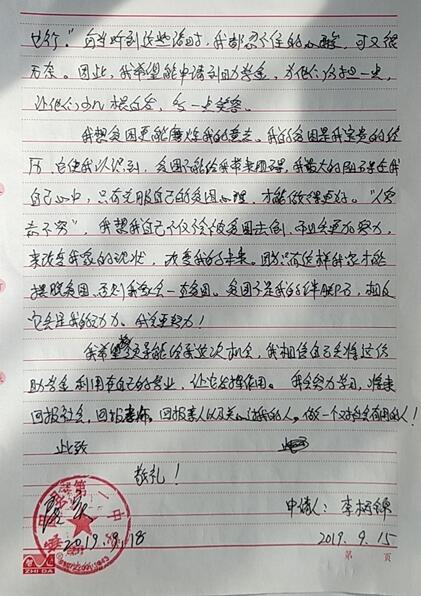 也行。"每当听到这些话时，我都忍不住的心酸，可又很
无奈。因此，我希望能申请到助学金，为他们分担一点，
让他们少一根白发，多一点笑容。
我想贫困更能磨炼我的意志。我的贫困是我宝贵的经
历，它使我认识到，贫困不能给我带来阻碍，我最大的阻碍是在我
自己心中，只有克服自己的贫困心理，才能做得更好。"人穷
志不穷"，我想我自己不仅不会被贫困击倒，而且会更加努力，
来改变我家的现状，改变我的未来。因为只有这样我家才能
摆脱贫困，否则我就会一直贫困。贫困不是我的绊脚石，相反
它会是我的动力。我会更努力！
我希望领导能给我这次机会，我相信自己会将这份
助学金利用在自己的学业，让它发挥作用。我会努力学习，将来
回报社会，回报老师，回报亲人以及关心过我的人。做一个对社会有用的人！
此致
敬礼！
申请人：李
2019.9.18
2019.9.15
第 页
ZHI DA